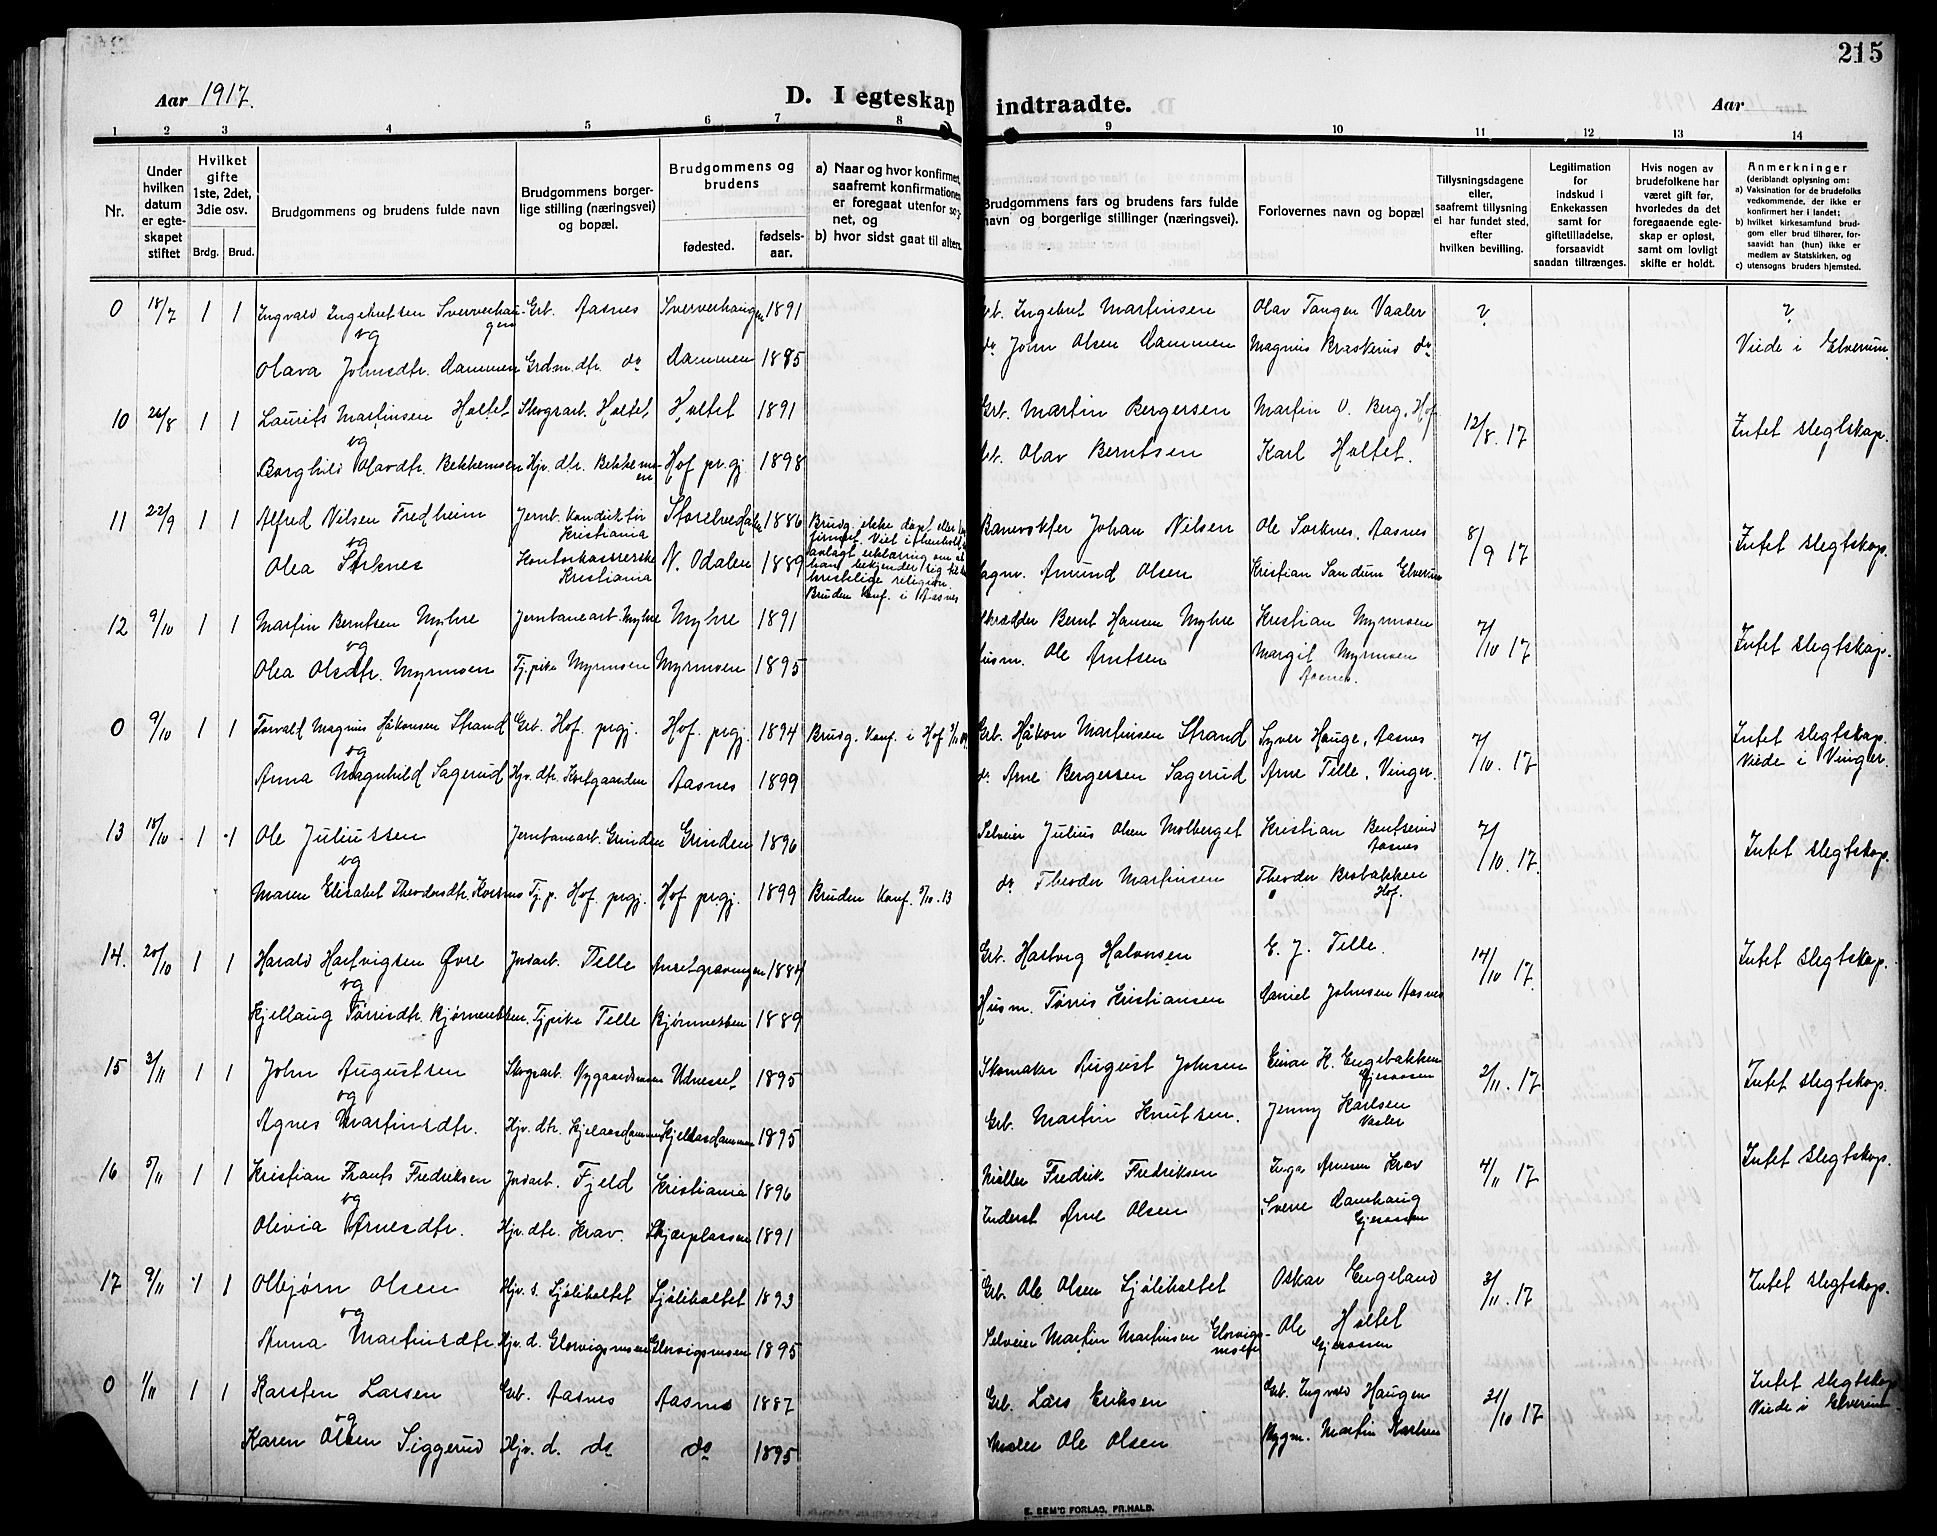 215
Aar 1917.
D. I egteskap indtraadte.
Aar
1 2 3 4 5 6 7 8 9 10 11 12 13 14
Nr.
Under hvilken datum er egteskapet stiftet
Hvilket gifte 1ste, 2det, 3die osv.
Brdg. Brud.
Brudgommens og brudens fulde navn
Brudgommens borgerlige stilling (næringsvei) og bopæl.
Brudgommens og brudens
fødested.
fødselsaar.
a) Naar og hvor konfirmert, saafremt konfirmationen er foregaat utenfor sognet, og
b) hvor sidst gaat til alters.
Brudgommens fars og brudens fars fulde navn og borgerlige stillinger (næringsvei).
Forlovernes navn og bopæl
Tillysningsdagene eller, saafremt tillysning ei har fundet sted, efter hvilken bevilling.
Legitimation for indskud i Enkekassen samt for giftetilladelse, forsaavidt saadan tiltrænges.
Hvis nogen av brudefolkene har været gift før, hvorledes da det foregaaende egteskap er opløst, samt om lovligt skifte er holdt.
Anmerkninger (deriblandt oplysning om: a) Vaksination for de brudefolks vedkommende, der ikke er konfirmert her i landet; b) hvilket kirkesamfund brudgom eller brud tilhører, forsaavidt han (hun) ikke er medlem av Statskirken, og c) utensogns bruders hjemsted.
0 18/7 1 1 Ingvald Ingebretsen Sververhaugen Grb. Aasnes Sververhaugen 1891 Ingebret Martinsen Olav Tangen Vaaler ? ?
og
Olava Johnsdtr. Dammen Grdm. dtr. do Dammen 1885 do John Olsen Dammen Magnus Braskerud do Viede i Elverum
10 26/8 1 1 Laurits Martinsen Holtet Skogsarb. Holtet Holtet 1891 Grb. Martin Bergersen Martin O. Berg, Hof 12/8. 17 Intet slegtskap.
og
Borghild Olavdtr. Bekkemoen Hjv. dtr. Bekkemoen Hof pr.gj. 1898 Olav Berntsen Karl Holtet.
11 22/9 1 1 Alfred Nilsen Fredheim Jernb. konduktør Kristiania Storelvedalen 1886 Brudg. ikke døpt eller Banevokter Johan Nilsen Ole Sorknes, Aasnes 8/9 17 Intet slegtskap.
og
Olea Sorknes Kontorkasserske Kristiania N. Odalen 1889 avlagt erklæring om at han bekjender sig til kristelige religion. Bruden konf. i Aasnes Amund Olsen Kristian Sandum Elverum
12 9/10 1 1 Martin Berntsen Myhre Jernbanearb. Myhre Myhre 1891 Skrædder Bernt Hansen Myhre Kristian Myrmoen 7/10 17 Intet slegtskap.
og
Olea Olsdtr. Myrmoen Tj.pike Myrmoen Myrmoen 1895 Husm. Ole Arntsen Margit Myrmoen Aasnes.
0 9/10 1 1 Torvald Magnus Håkonsen Strand Grb. Hof. prgj. Hof. prgj. 1894 Brudg. konf. i Hof Grb. Håkon Martinsen Strand Syver Hauge, Aasnes 7/10. 17 Intet slegtskap. Viede i Vinger.
og
Anna Magnhild Sagerud Hjv. dtr. Kortgaarden Aasnes 1899 do. Arne Bergersen Sagerud Arne Telle, Vinger.
13 18/10 1 1 Ole Juliussen Jernbanearb. Grinden Grinden 1896 Selveier Julius Olsen Molberget Kristian Bentserud Aasnes 7/10. 17. Intet slegtskap.
og
Maren Elisabet Theodorsdtr. Korsmo Tj.p. Hof. prgj. Hof prgj. 1899 Bruden konf. 5/10. 13 do Theodor Martinsen Theodor Brobakken Hof.
14. 20/10 1 1 Harald Hartvigsen Øvre Jordarb. Telle Ansetgravningen 1884 Grb. Hartvig Halvorsen E. J. Telle. 14/10 17. Intet slegtskap.
og
Kjellaug Tørrisdtr. Bjørneresten. Tjpike Telle Bjørneresten 1889 Husm. Tørris Kristiansen Daniel Johnsen Aasnes
15 3/11 1 1 John Augustsen Skogsarb. Nygaardsmoen Udnesset 1895 Skomaker August Johnsen Einar H. Engebakken Gjeraasen 2/11. 17 Intet slegtskap.
og
Agnes Martinsdtr. Hjv. dtr. Kjelaasdammen Kjelaasdammen 1895 Grb. Martin Knutsen. Jenny Karlsen Vaaler
16 5/11 1 1 Kristian Frants Fredriksen Jordarb. Fjeld Kristiania 1896 Møller Fredrik Fredriksen Inga Arnesen Krav 4/11 17 Intet slegtskap.
og
Olivia Arnesdtr. Hjv. dtr. Krav. Skjærplassen 1891 Inderst Arne Olsen Sverre Damhaug Gjeraasen
17 9/11 1 1 Olbjørn Olsen Hjv. s. Sjøliholtet Sjøliholtet 1893 Grb. Ole Olsen Sjøliholtet Oskar Engeland 3/11. 17 Intet slegtskap.
og
Anna Martinsdtr. Hjv. d. Glorvigsmoen Glorvigsmoen 1895 Selveier Martin Martinsen Glorvigsmoen Ole Holtet Gjeraasen
0 1/11 1 1 Karsten Larsen Grb. Aasnes Aasnes 1887 Grb. Lars Eriksen Grb. Ingvald Haugen 21/10 17 Intet slegtskap Viede i Elverum
og
Karen Olsen Siggerud Hjv. d. do do 1895 Maler Ole Olsen Bygm. Martin Karlsen
E. SEM'S FORLAG, FR.HALD.